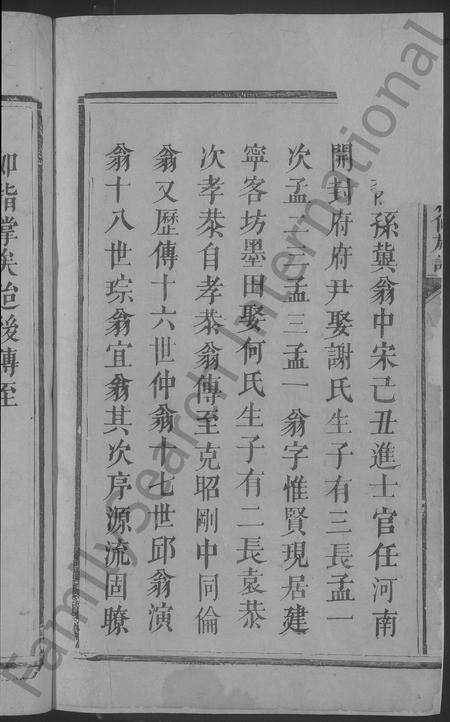 孫冀翁中宋己丑進士官任河南
開封府府尹娶謝氏生子有三長孟一
次孟二三孟三孟一 翁字惟賢現居建
寧客坊墨田娶何氏生子有二長袁恭
次孝恭自孝恭翁傳至克昭剛中同倫
翁又歷傳十六世仲翁十七世邱翁演
翁十八世琮翁宜翁其次序源流固瞭
如指掌矣迨後傳至
FamilySearch International